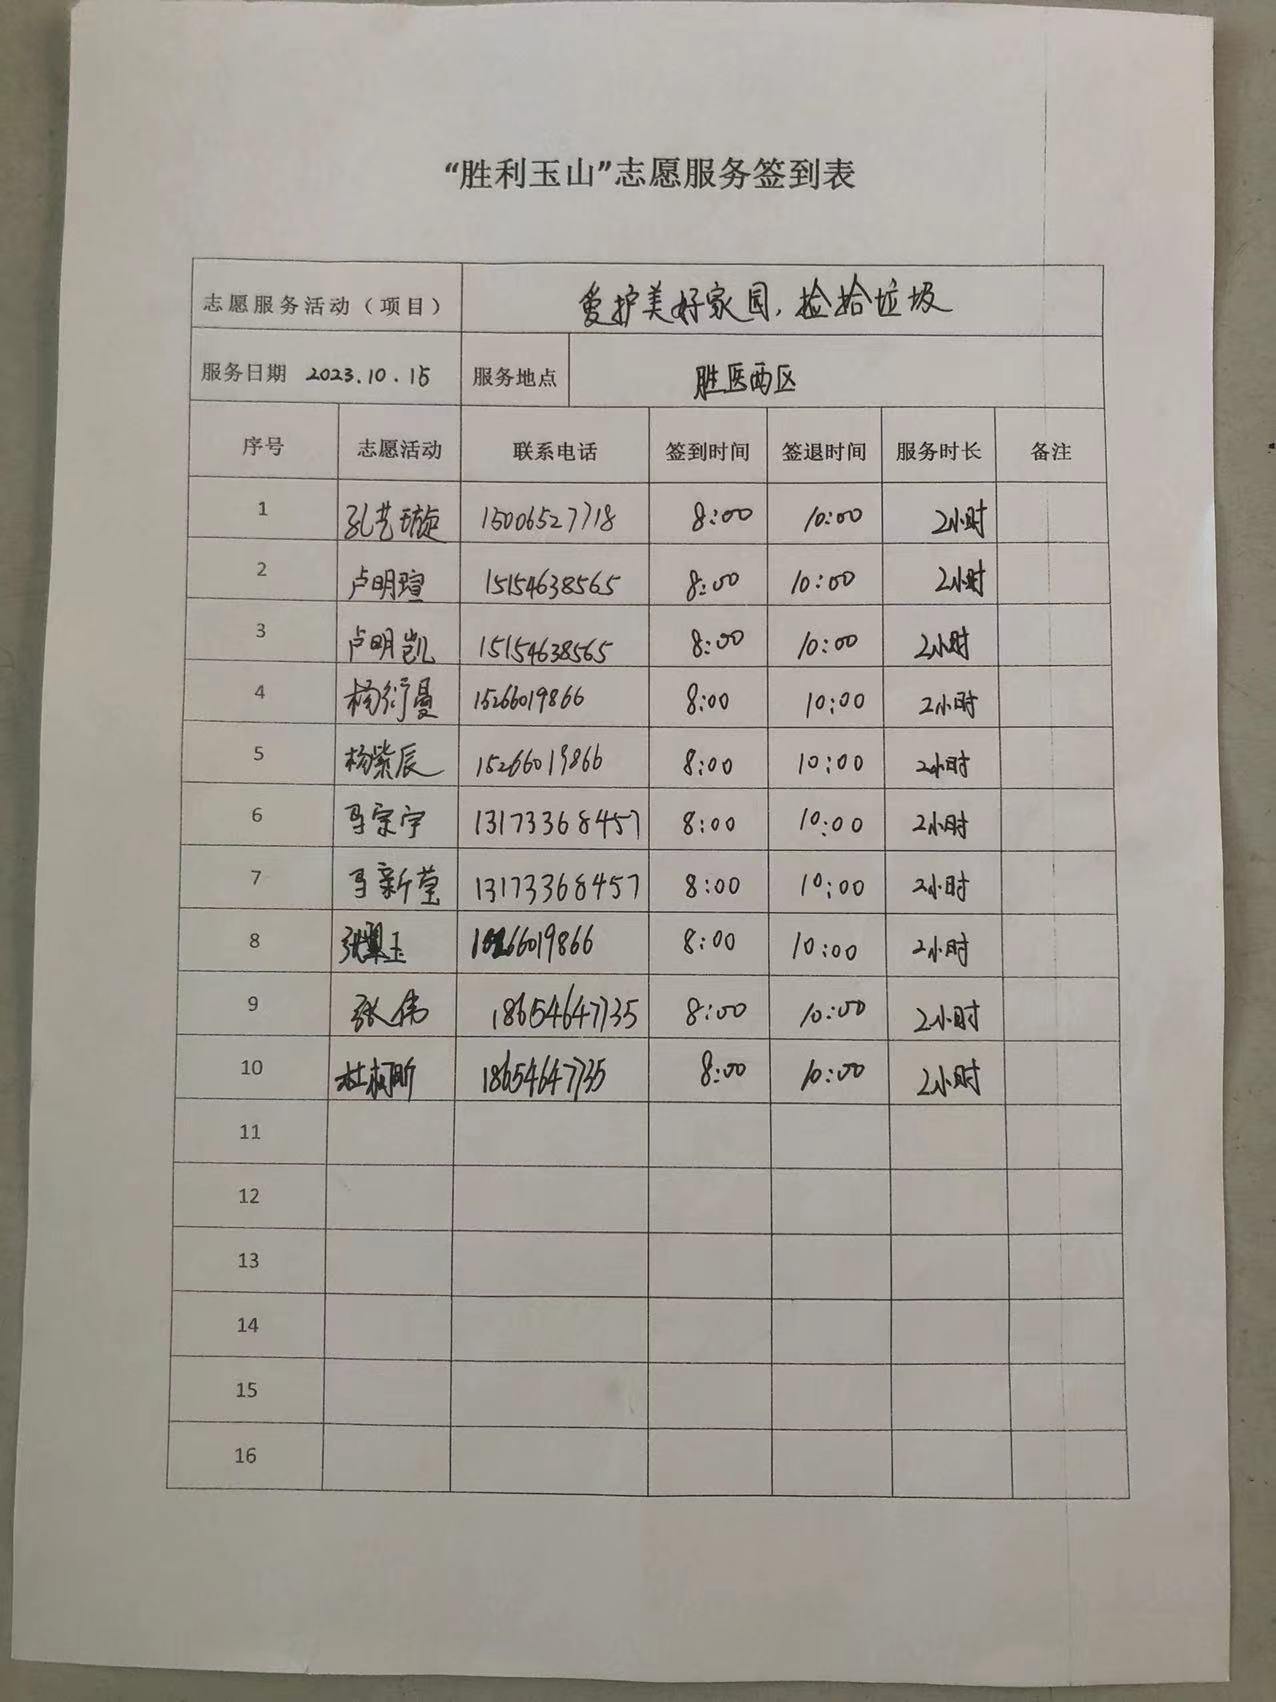 “胜利玉山”志愿服务签到表
志愿服务活动（项目） 爱护美好家园，捡拾垃圾
服务日期 2023.10.15 服务地点 胜医西区
序号 志愿活动 联系电话 签到时间 签退时间 服务时长 备注
1 孔艺璇 15006527718 8:00 10:00 2小时
2 卢明瑄 15154638565 8:00 10:00 2小时
3 卢明凯 15154638565 8:00 10:00 2小时
4 杨衍曼 15266019866 8:00 10:00 2小时
5 杨紫辰 15266019866 8:00 10:00 2小时
6 马宗宇 13173368457 8:00 10:00 2小时
7 马新莹 13173368457 8:00 10:00 2小时
8 张翼玉 15266019866 8:00 10:00 2小时
9 张伟 18654647735 8:00 10:00 2小时
10 杜柯昕 18654647735 8:00 10:00 2小时
11
12
13
14
15
16